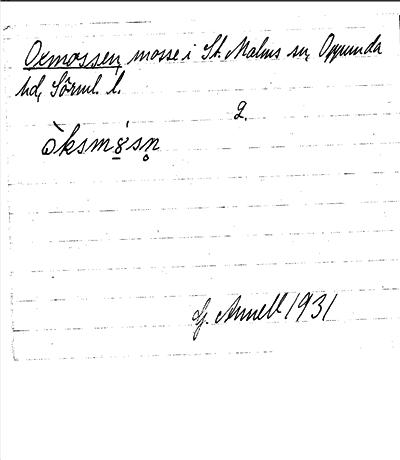 Oxmossen, mosse i St. Malms sn, Oppunda
hd, Sörml. l.
2.
òksmȣ́sn̥
G. Annell 1931